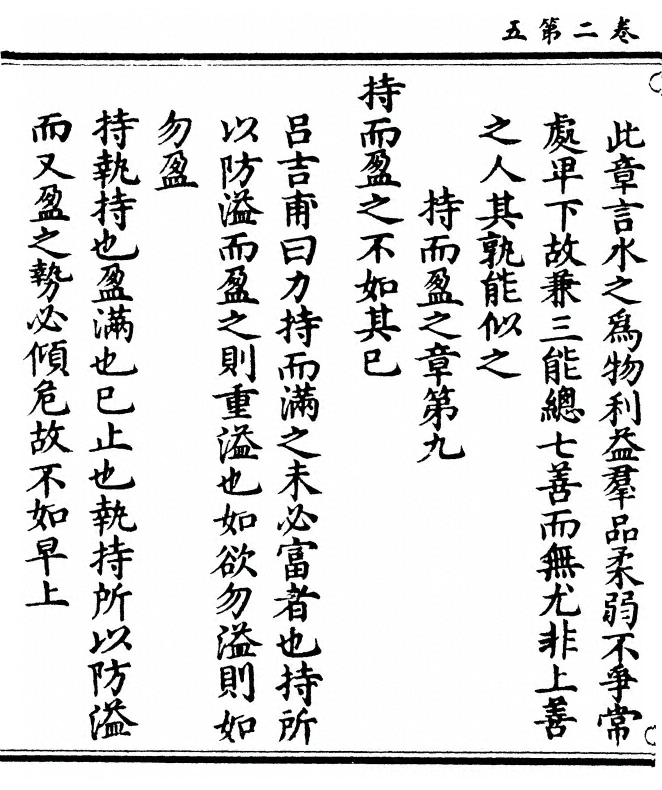 卷二第五
此章言水之爲物利益羣品柔弱不爭常
處卑下故兼三能總七善而無尤非上善
之人其孰能似之
持而盈之章第九
持而盈之不如其巳
呂吉甫曰力持而滿之未必富者也持所
以防溢而盈之則重溢也如欲勿溢則如
勿盈
持執持也盈滿也巳止也執持所以防溢
而又盈之勢必傾危故不如早上